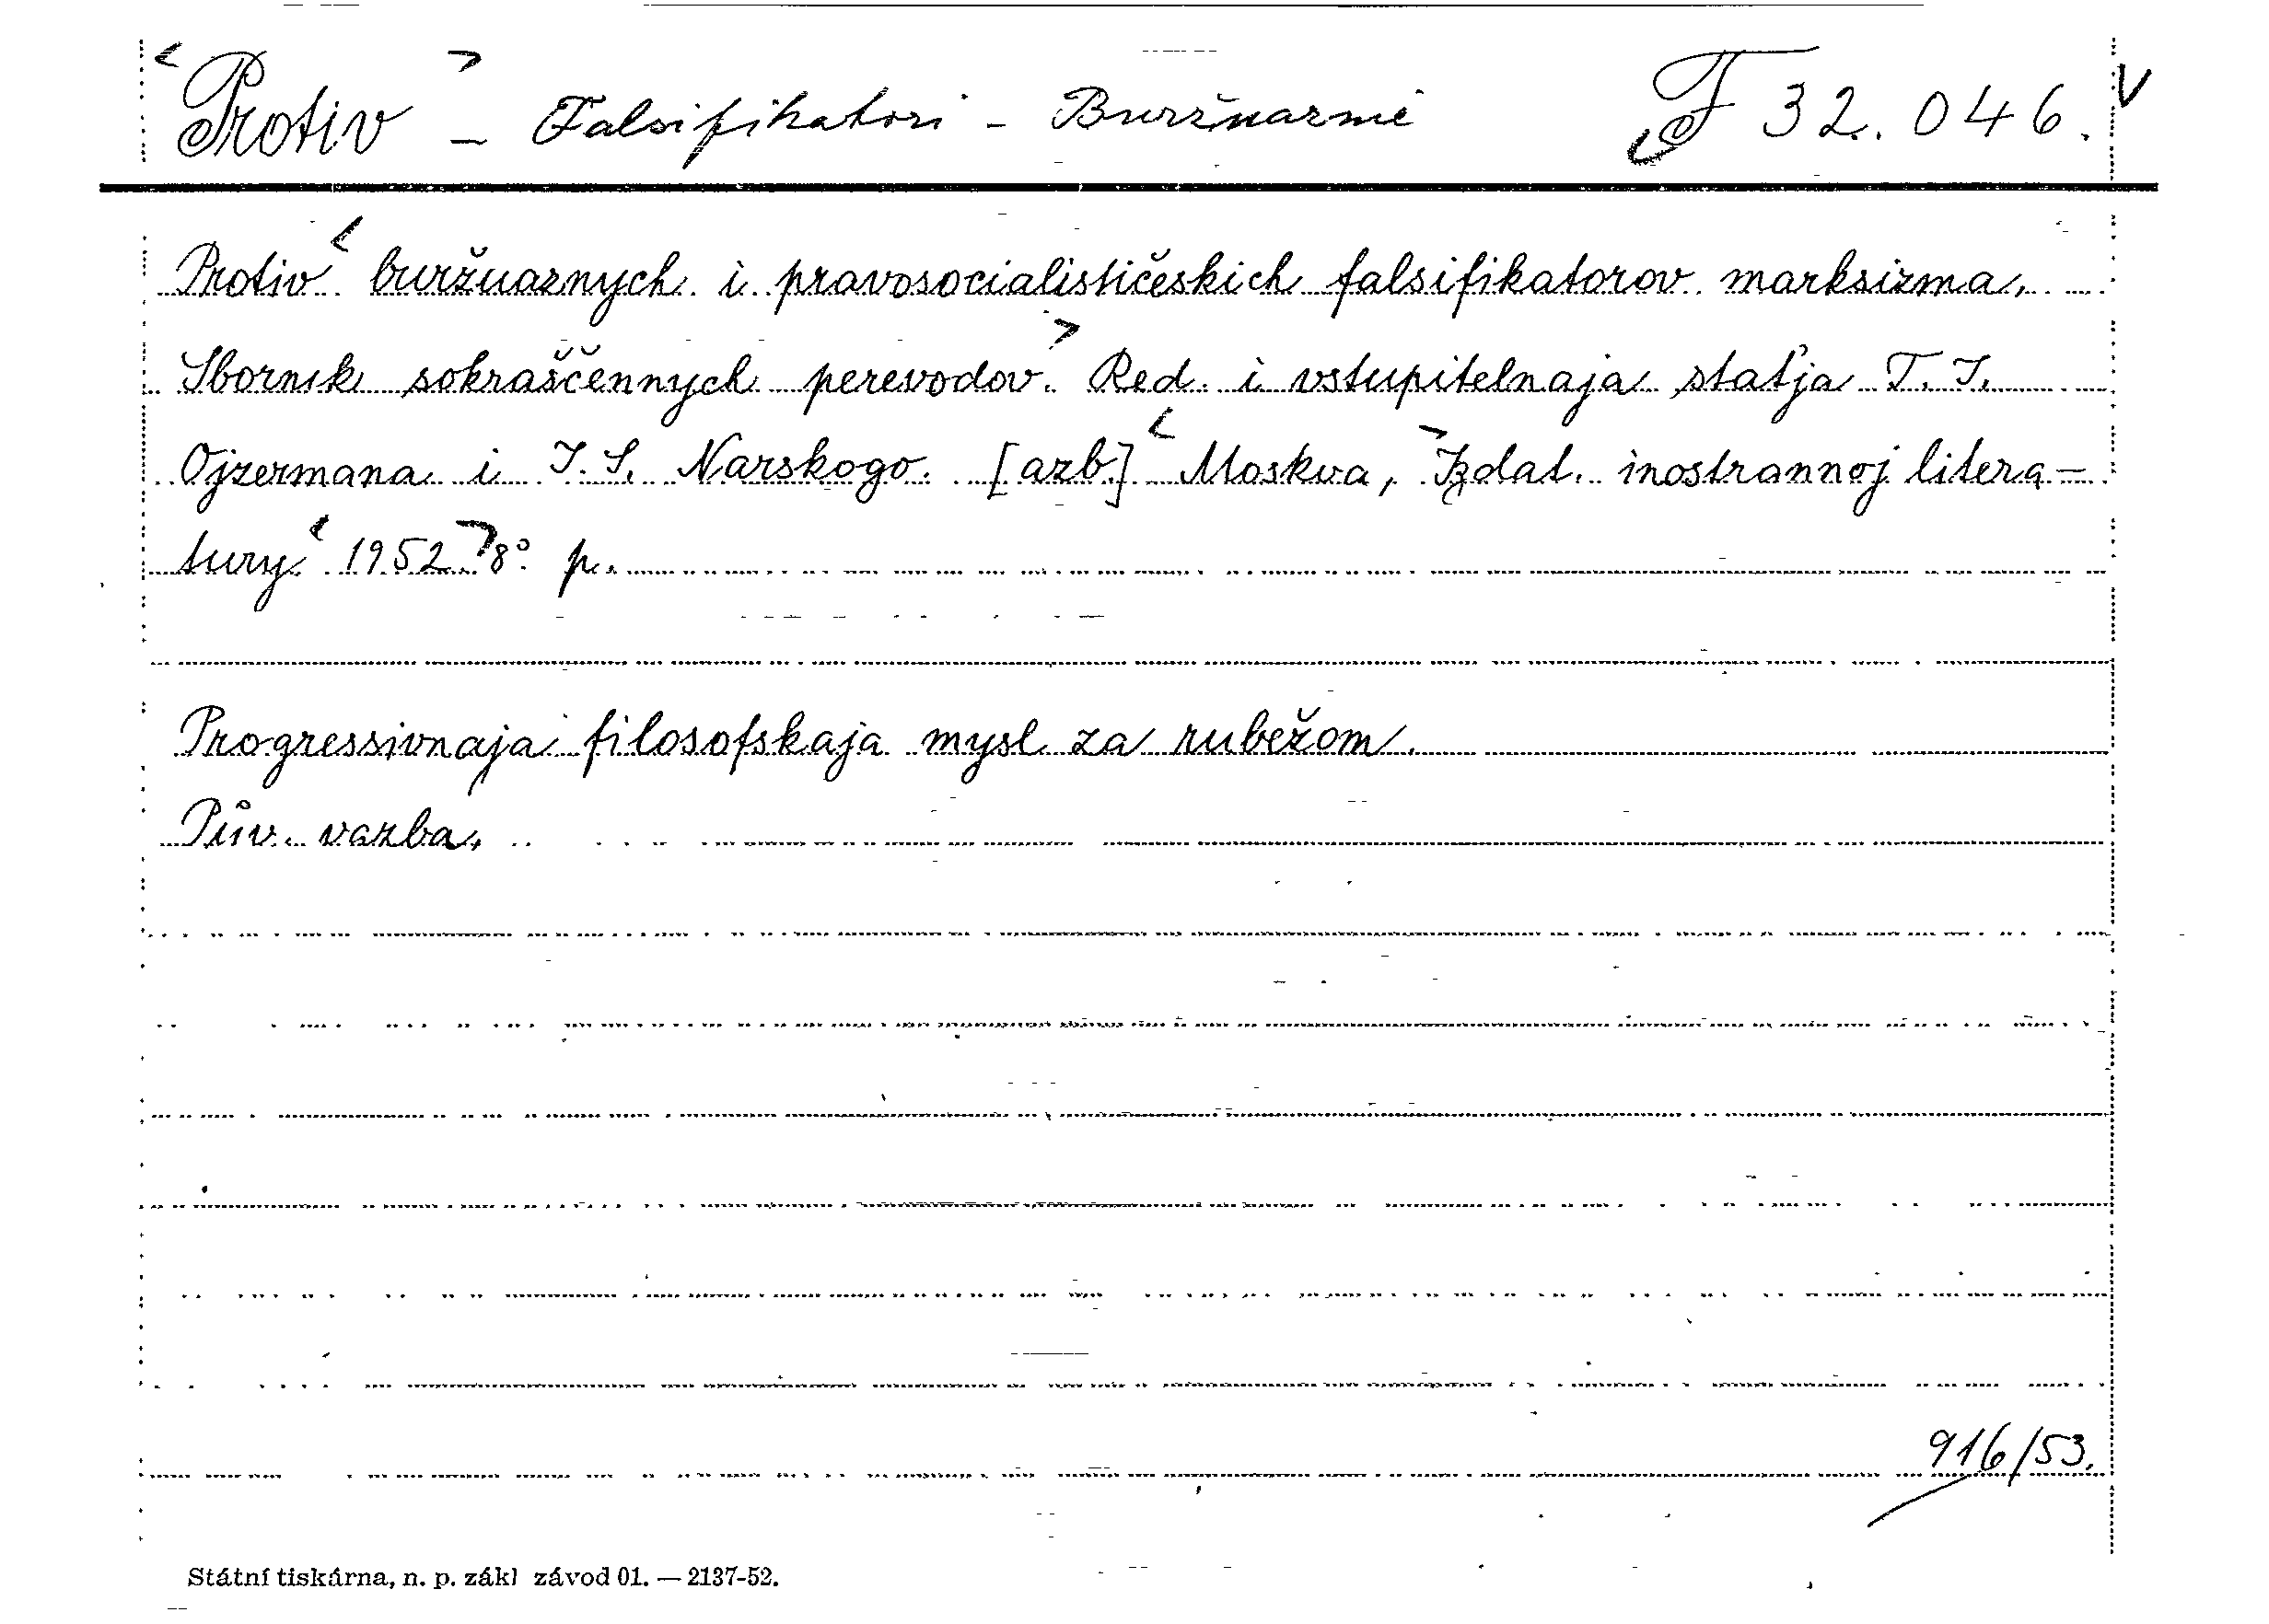 Protiv - Falsifikatori - Buržuazné F 32.046.
Protiv buržuaznych i pravosocialističeskich falsifikatorov marksizma.
Sborník sokraščennych perevodov. Red. i vstupitelnaja staťja T. I.
Ojzermana i I. S. Narskogo. [azb.] Moskva, Izdat. inostrannoj litera-
tury 1952. 8° p.
Progressivnaja filosofskaja mysl za rubežom.
Pův. vazba.
916/53.
Státní tiskárna, n. p. zákl závod 01. — 2137-52.